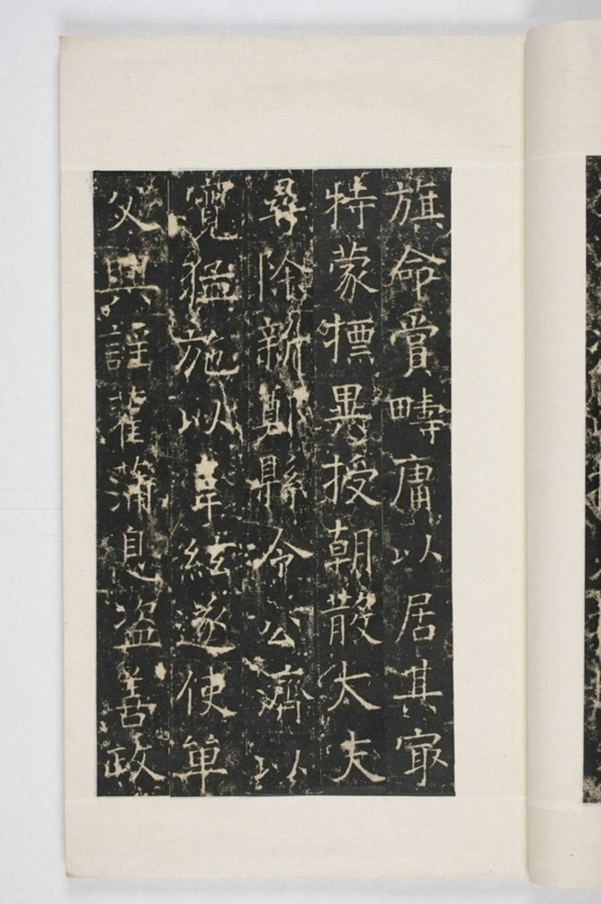 旗命賞疇庸以居其冣
特蒙標異授朝散大夫
尋除新鄭縣令公濟以
寬猛施以韋絃遂使單
父興謡雚蒲息盗善政